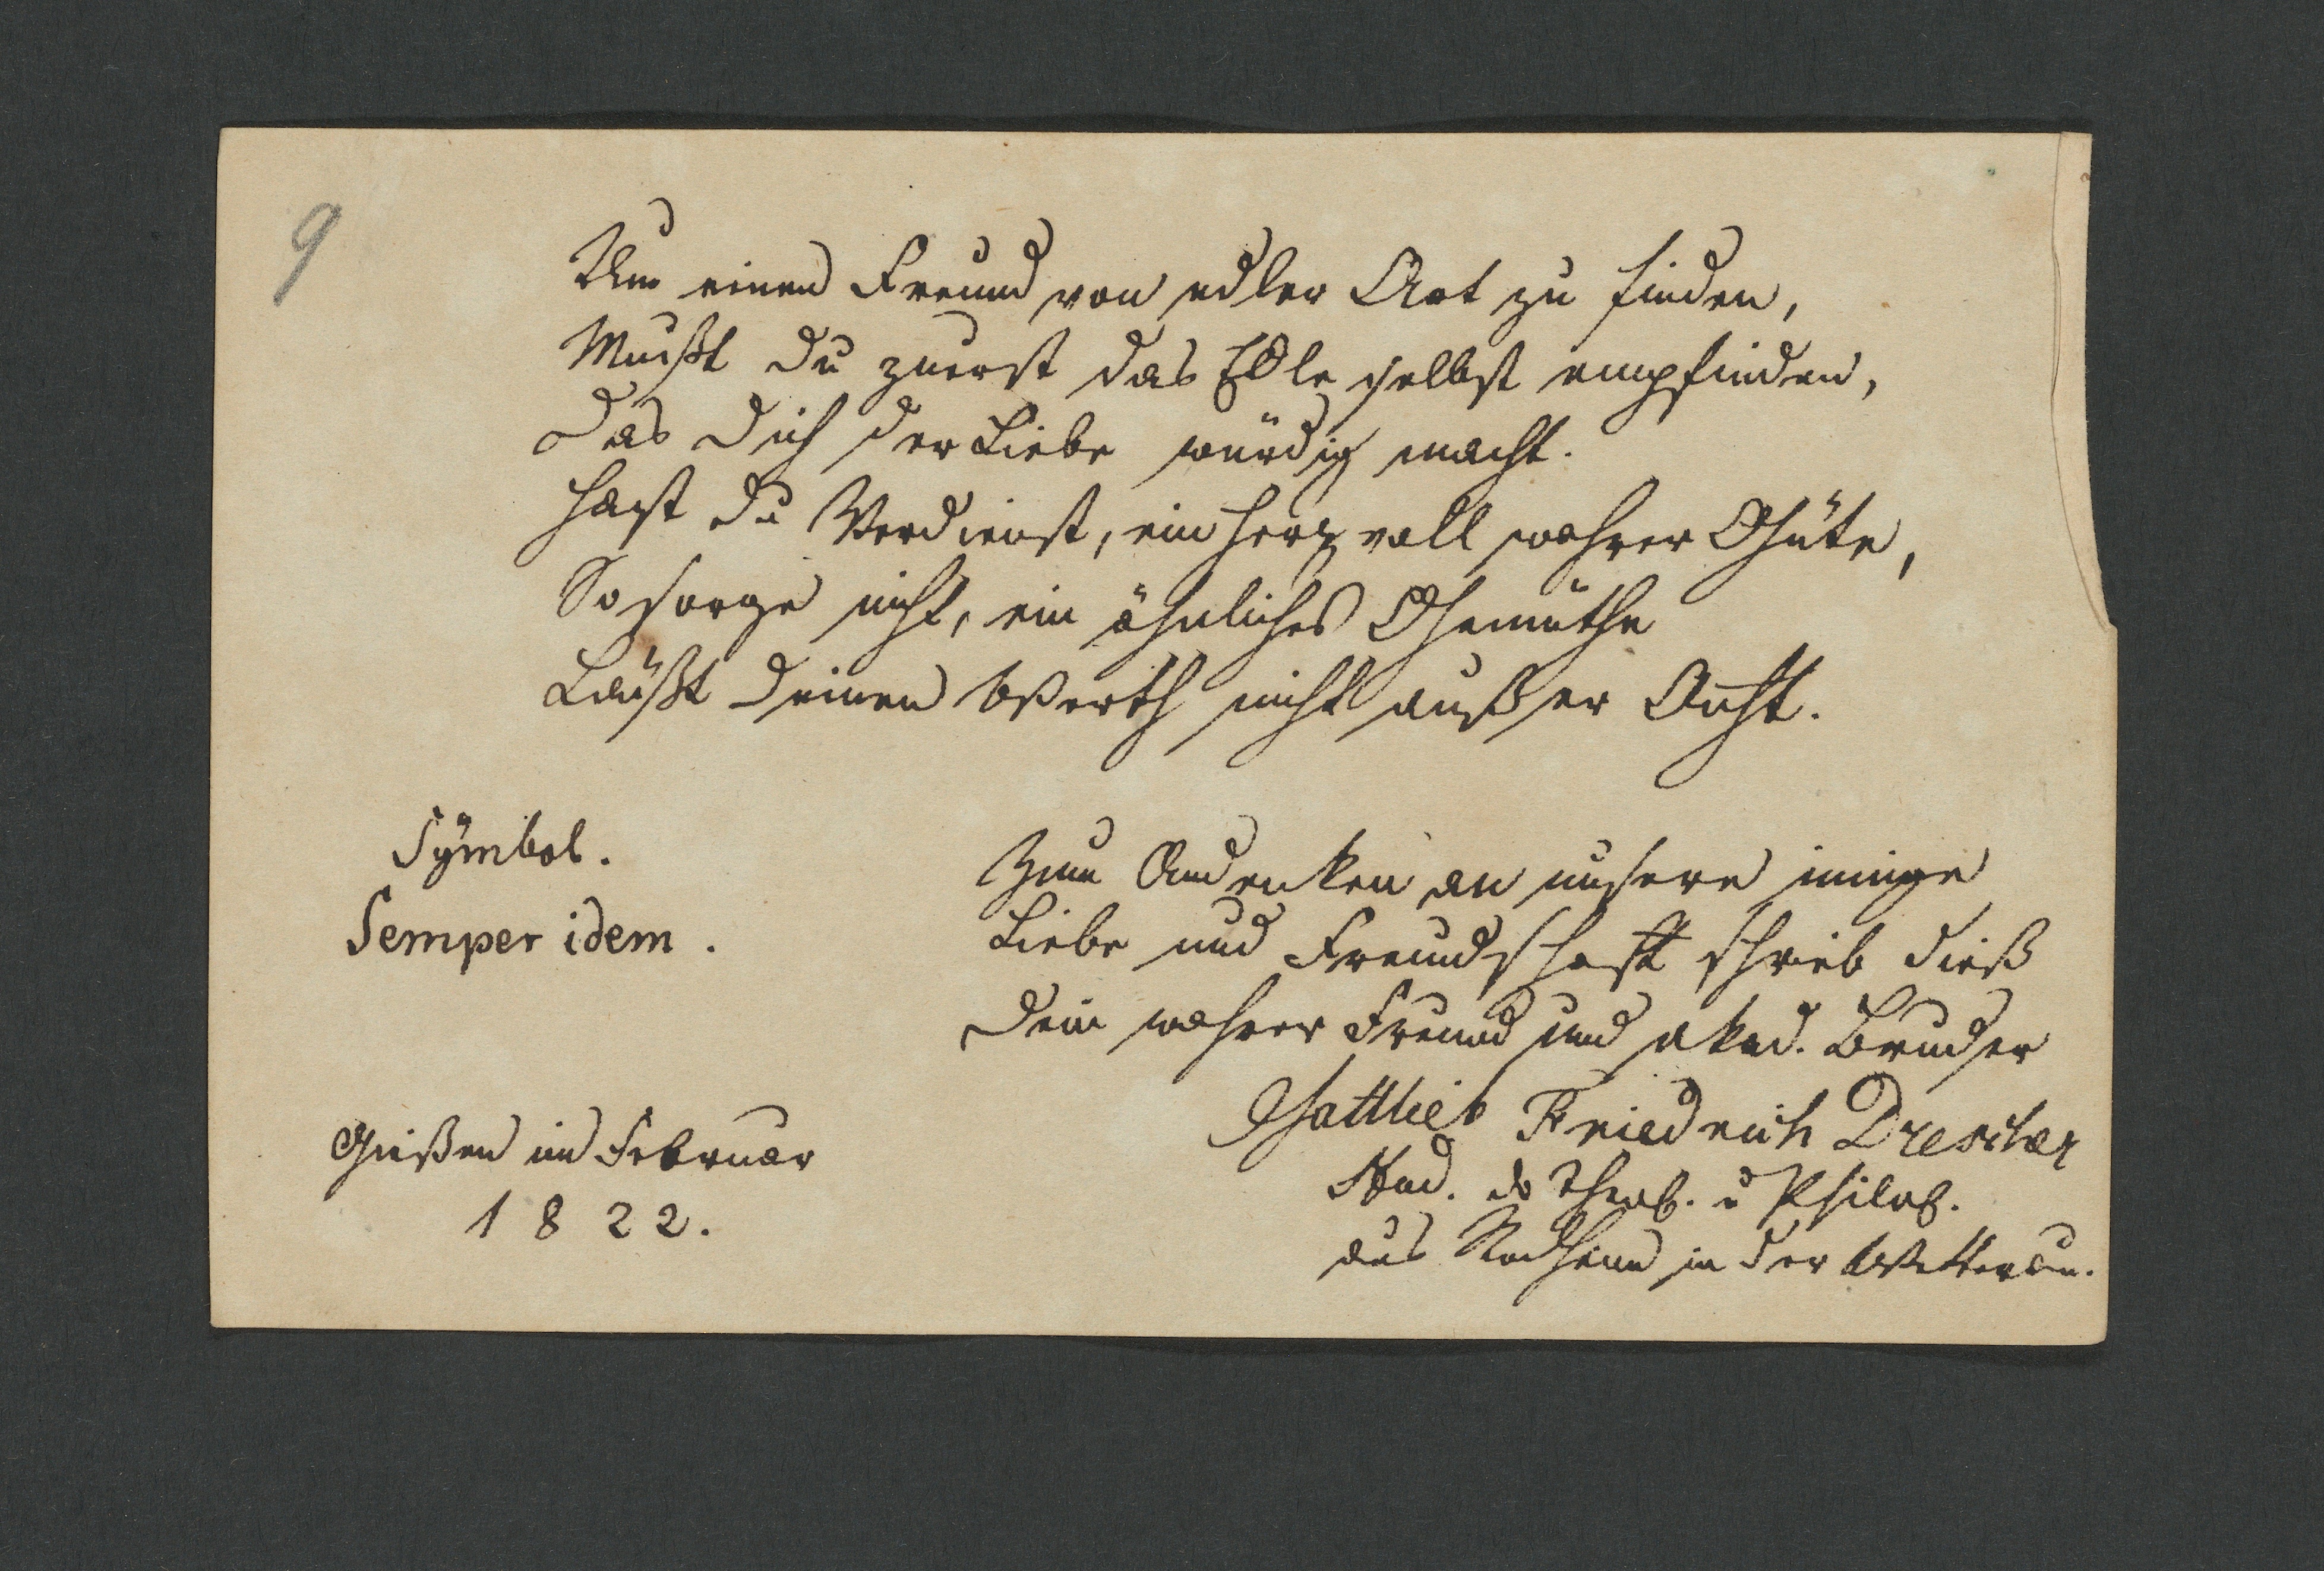 9
Um einen Freund von edler Art zu finden,
Mußt du zuerst das Edle selbst empfinden,
Das dich der Liebe würdig macht.
Hast du Verdienst, ein Herz voll wahrer Güte,
So sorge nicht, ein ähnliches Gemüthe
Läußt deinen Werth nicht außer Acht.
Sÿmbol.
Semper idem.
Zum Andenken an unsere innige
Liebe und Freundschaft schrieb dieß
dein wahrer Freund und akad. Bruder
Gottlieb Friedrich Drescher
Stud. d Theol. u Philos.
aus Rodheim in der Wetterau.
Gießen im Februar
1822.